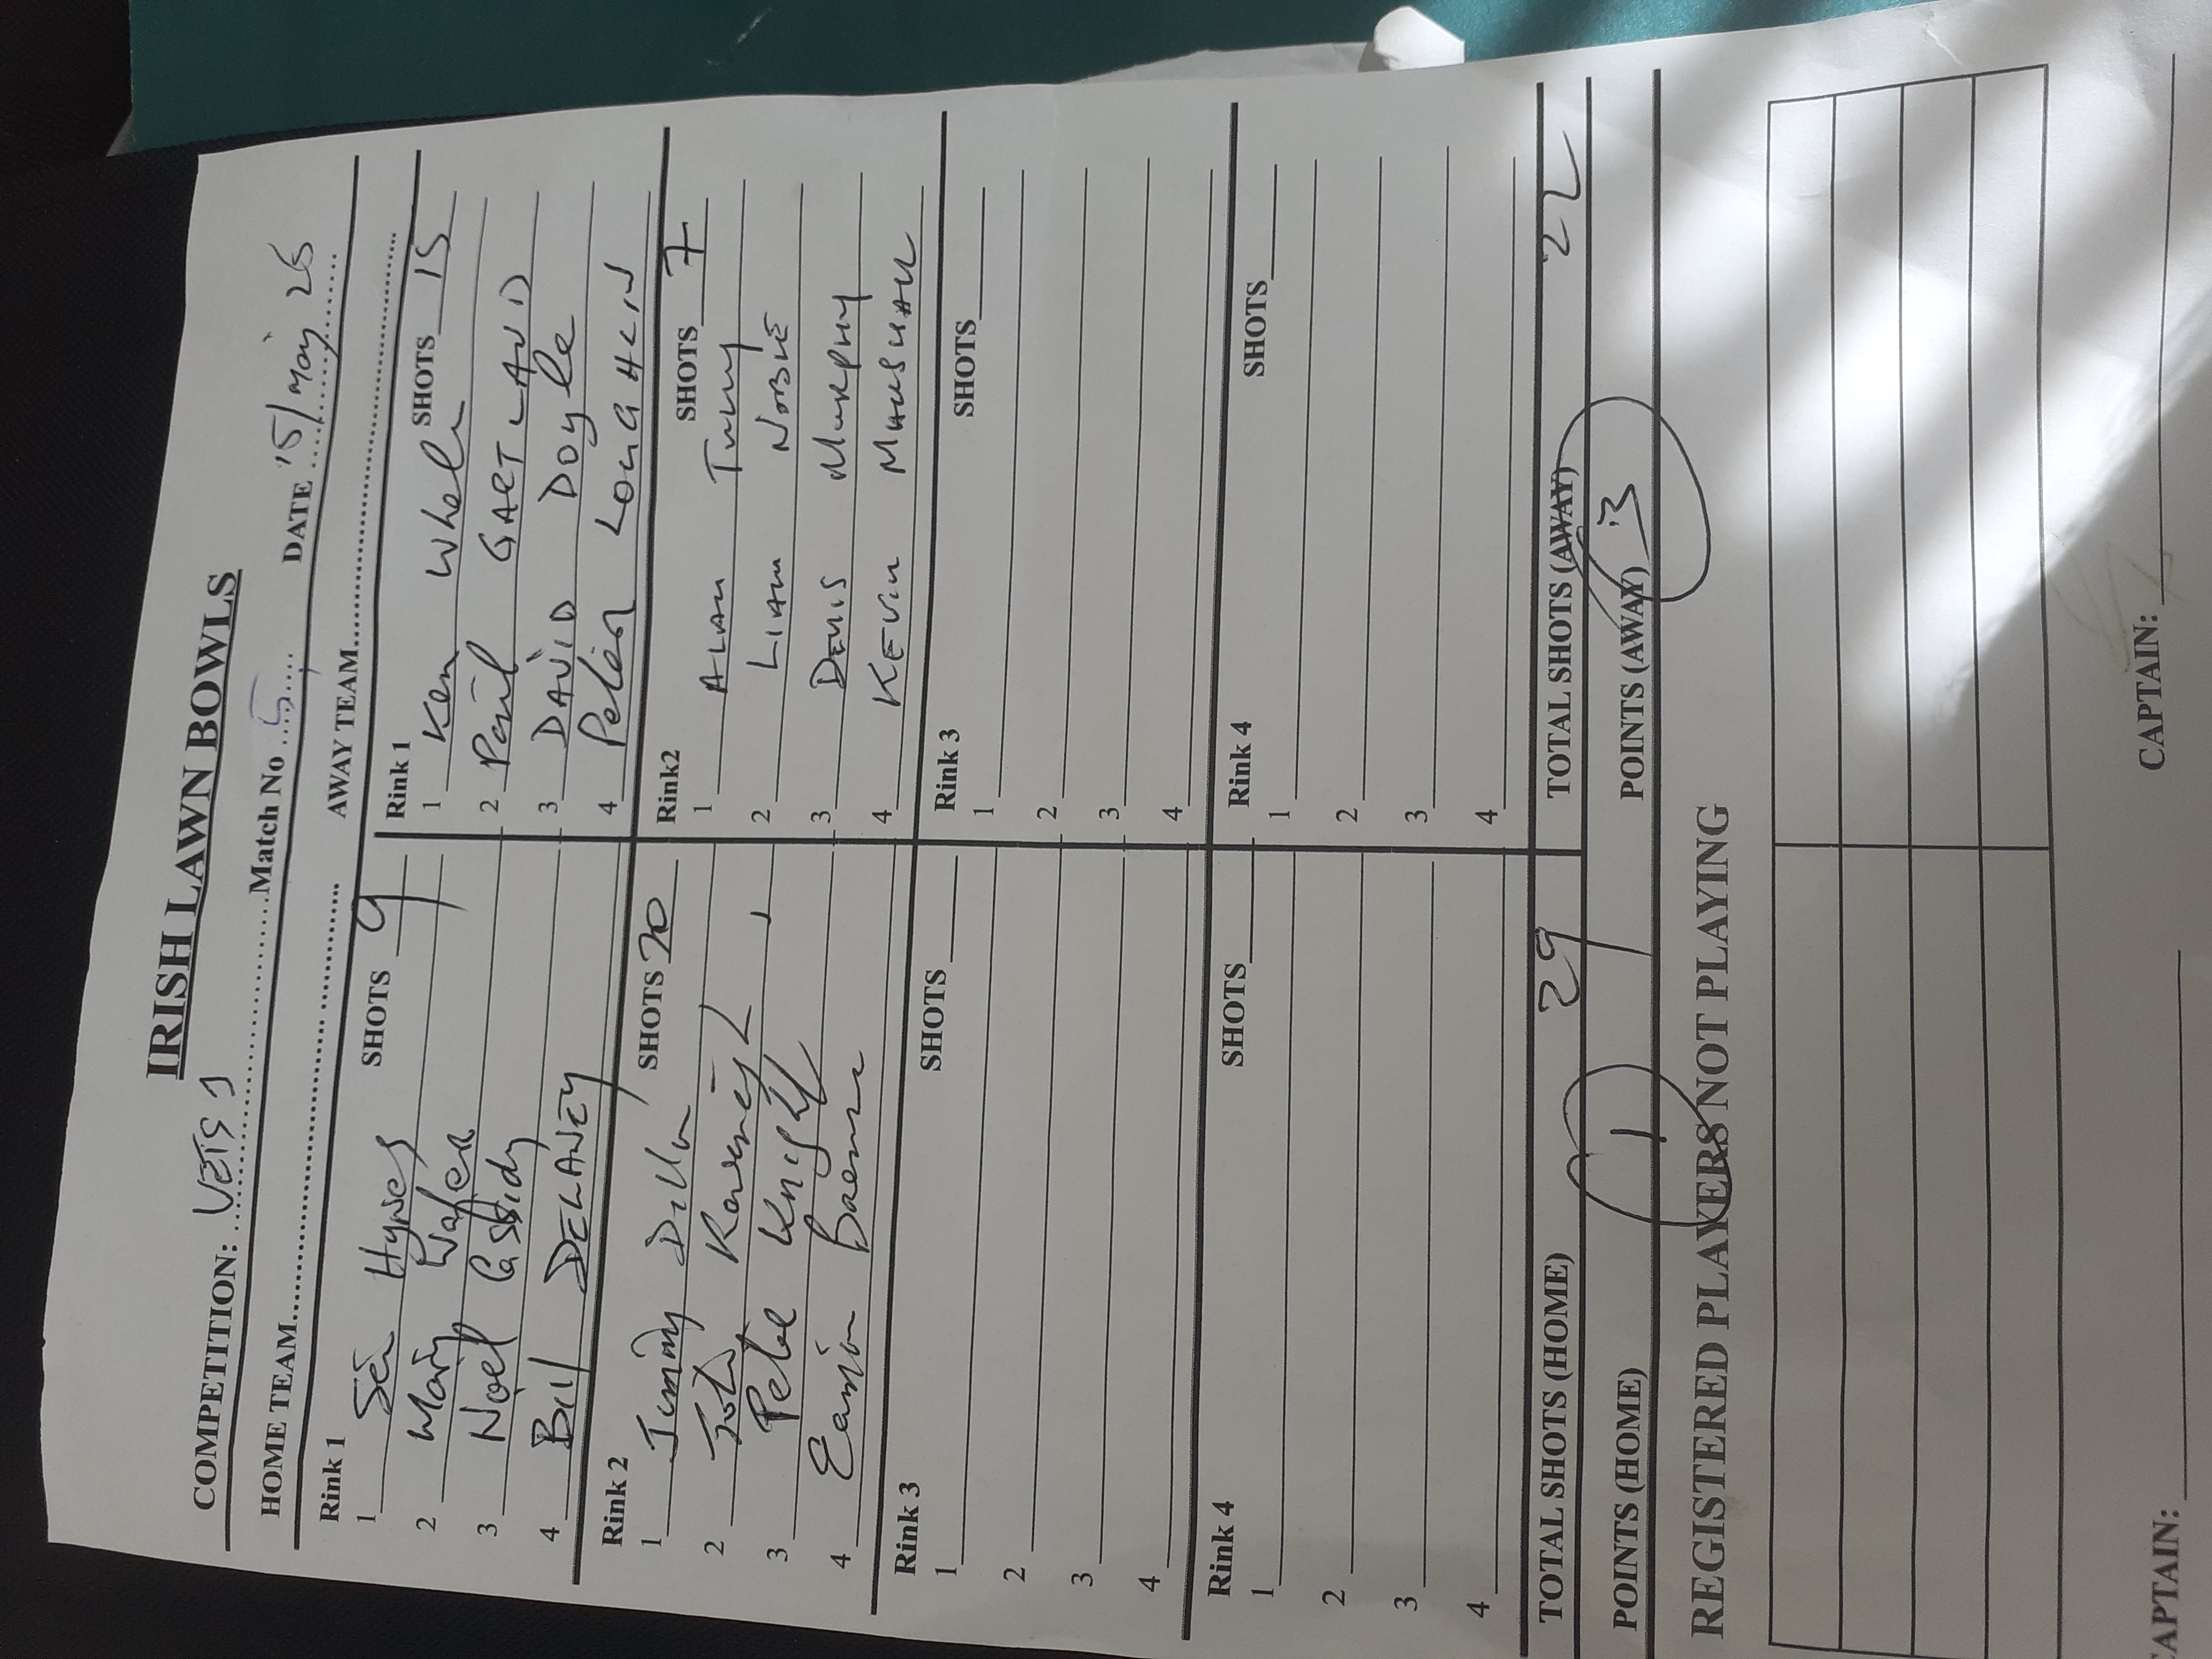 IRISH LAWN BOWLS
COMPETITION: VETS 1 Match No 5 DATE 15/May 26
HOME TEAM AWAY TEAM
Rink 1 SHOTS 9
1 Hynes
2 Wafer
3 Noel Cassidy
4 Bill DELANEY
Rink 2 SHOTS 20
1 Jimmy Dillon
2 John
3 Peter Knight
4 Eamon
Rink 3 SHOTS
1
2
3
4
Rink 4 SHOTS
1
2
3
4
TOTAL SHOTS (HOME) 29
POINTS (HOME) 1
Rink 1 SHOTS 15
1 Ken Whelan
2 Paul GARTLAND
3 DAVID Doyle
4 Peter LOUGHLIN
Rink2 SHOTS 7
1 ALAN Tunny
2 LIAM NOBLE
3 DENIS MURPHY
4 KEVIN MARSHALL
Rink 3 SHOTS
1
2
3
4
Rink 4 SHOTS
1
2
3
4
TOTAL SHOTS (AWAY) 22
POINTS (AWAY) 3
REGISTERED PLAYERS NOT PLAYING
CAPTAIN: CAPTAIN: